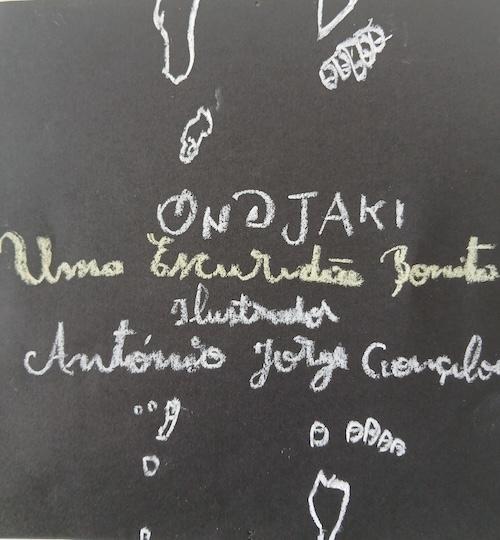 ONDJAKI
Uma Escuridão Bonita
Ilustrador
António Jorge Gonçalve